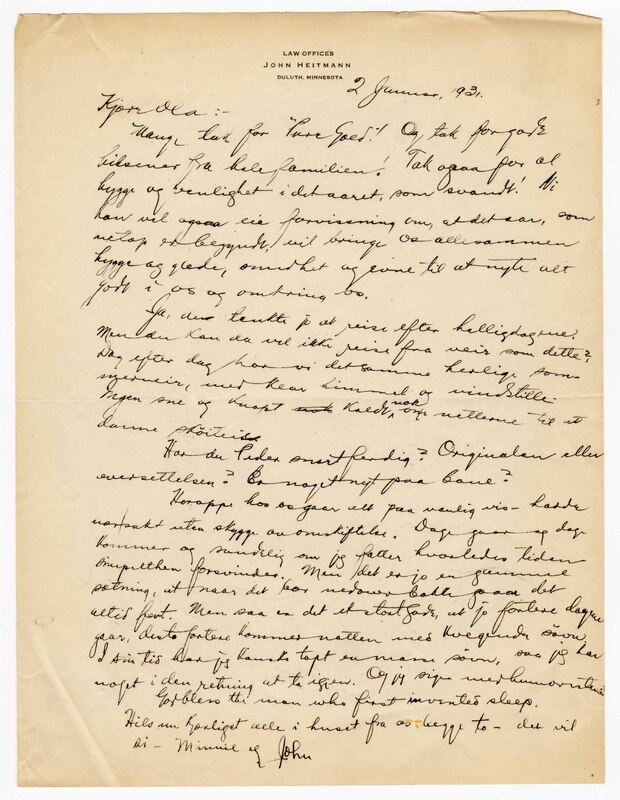 LAW OFFICES
JOHN HEITMANN
DULUTH, MINNESOTA
2 Januar, 1931.
Kjære Ola :-
Mange tak for "Pure Gold"! Og tak for gode
hilsener fra hele familien! Tak ogsaa for al
hygge og venlighet i det aaret, som svandt! Vi
kan vel ogsaa eie forvissning om, at det aar, som
netop er begyndt, vil bringe os allesammen
hygge og glæde, sundhet og evne til at nyte alt
godt i os og omkring os.
Ja, du tenkte jo at reise efter helligdagene.
Men du kan da vel ikke reise fra veir som dette?
Dag efter dag har vi det samme herlige som-
merveir, med klar himmel og vindstille
Ingen sne og knapt nok koldt nok om netterne til at
danne skøiteis
Har du Peder snart ferdig? Originalen eller
oversettelsen? Er noget nyt paa bane?
Heroppe hos os gaar alt paa vanlig vis -
uten skygge av omskiftelse. Dage gaar og dage
kommer og sandelig om jeg fatter hvorledes tiden
forsvinder. Men det er jo en gammel
sætning, at naar det bær nedover bakke gaar det
altid fort. Men saa er det et stort gode, at jo fortere dagen
gaar, desto fortere kommer natten med kvegende søvn.
I sin tid har jeg kanske tapt en mann søvn, saa jeg har
noget i den retning at ta igjen. Og jeg siger med humoristen:
God bless the man who first invented sleep.
Hils nu hjerligst alle i huset fra os begge to - det vil
si - Minnie og John